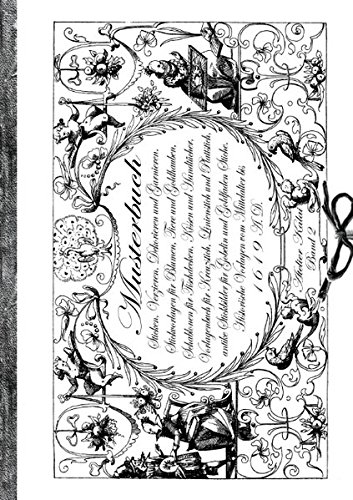 Musterbuch
Sticken, Verzieren, Dekorieren und Garnieren.
Stickvorlagen für Blumen, Tiere und Goldhauben,
Schablonen für Tischdecken, Kissen und Handtücher,
Vorlagenbuch für Kreuzstich, Leinenstich und Plattstich
antike Stickbilder für Gobelin und Goldfaden Stick
Historische Vorlagen vom Mittelalter bis
1619 A.D.
Band 2